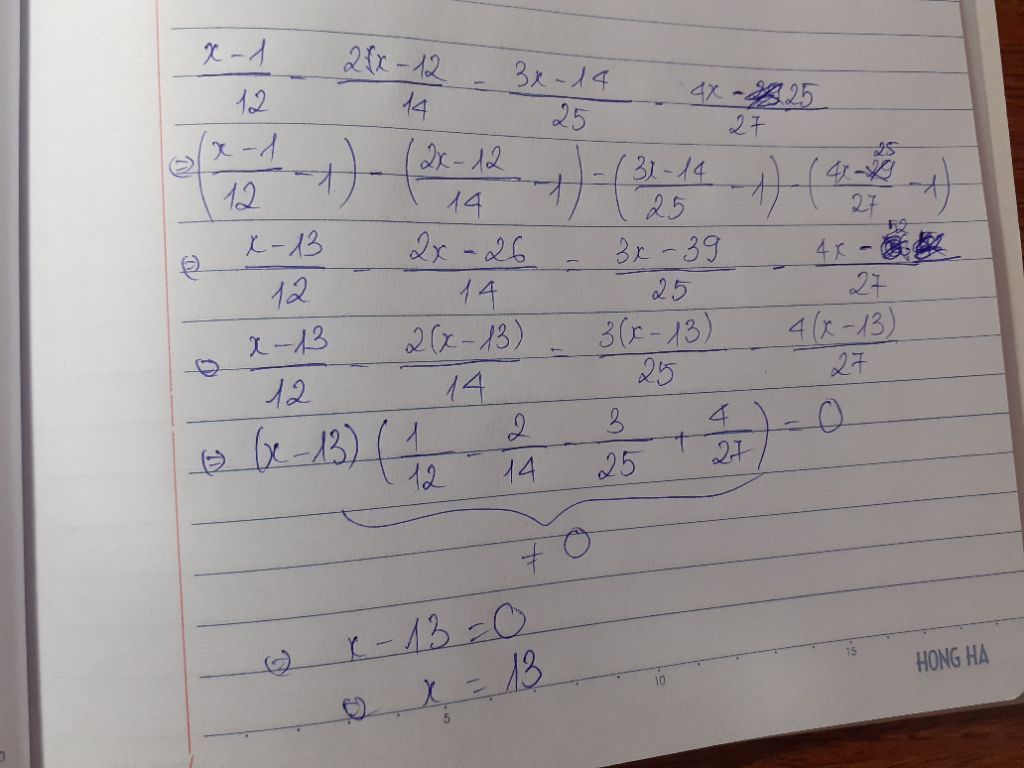 (x-1)/12 - (2x-12)/14 = (3x-14)/25 - (4x-25)/27
⇔ ((x-1)/12 - 1) - ((2x-12)/14 - 1) = ((3x-14)/25 - 1) - ((4x-25)/27 - 1)
⇔ (x-13)/12 - (2x-26)/14 = (3x-39)/25 - (4x-52)/27
⇔ (x-13)/12 - 2(x-13)/14 = 3(x-13)/25 - 4(x-13)/27
⇔ (x-13)(1/12 - 2/14 - 3/25 + 4/27) = 0
≠ 0
⇔ x-13 = 0
⇔ x = 13
5 10 15
HONG HA